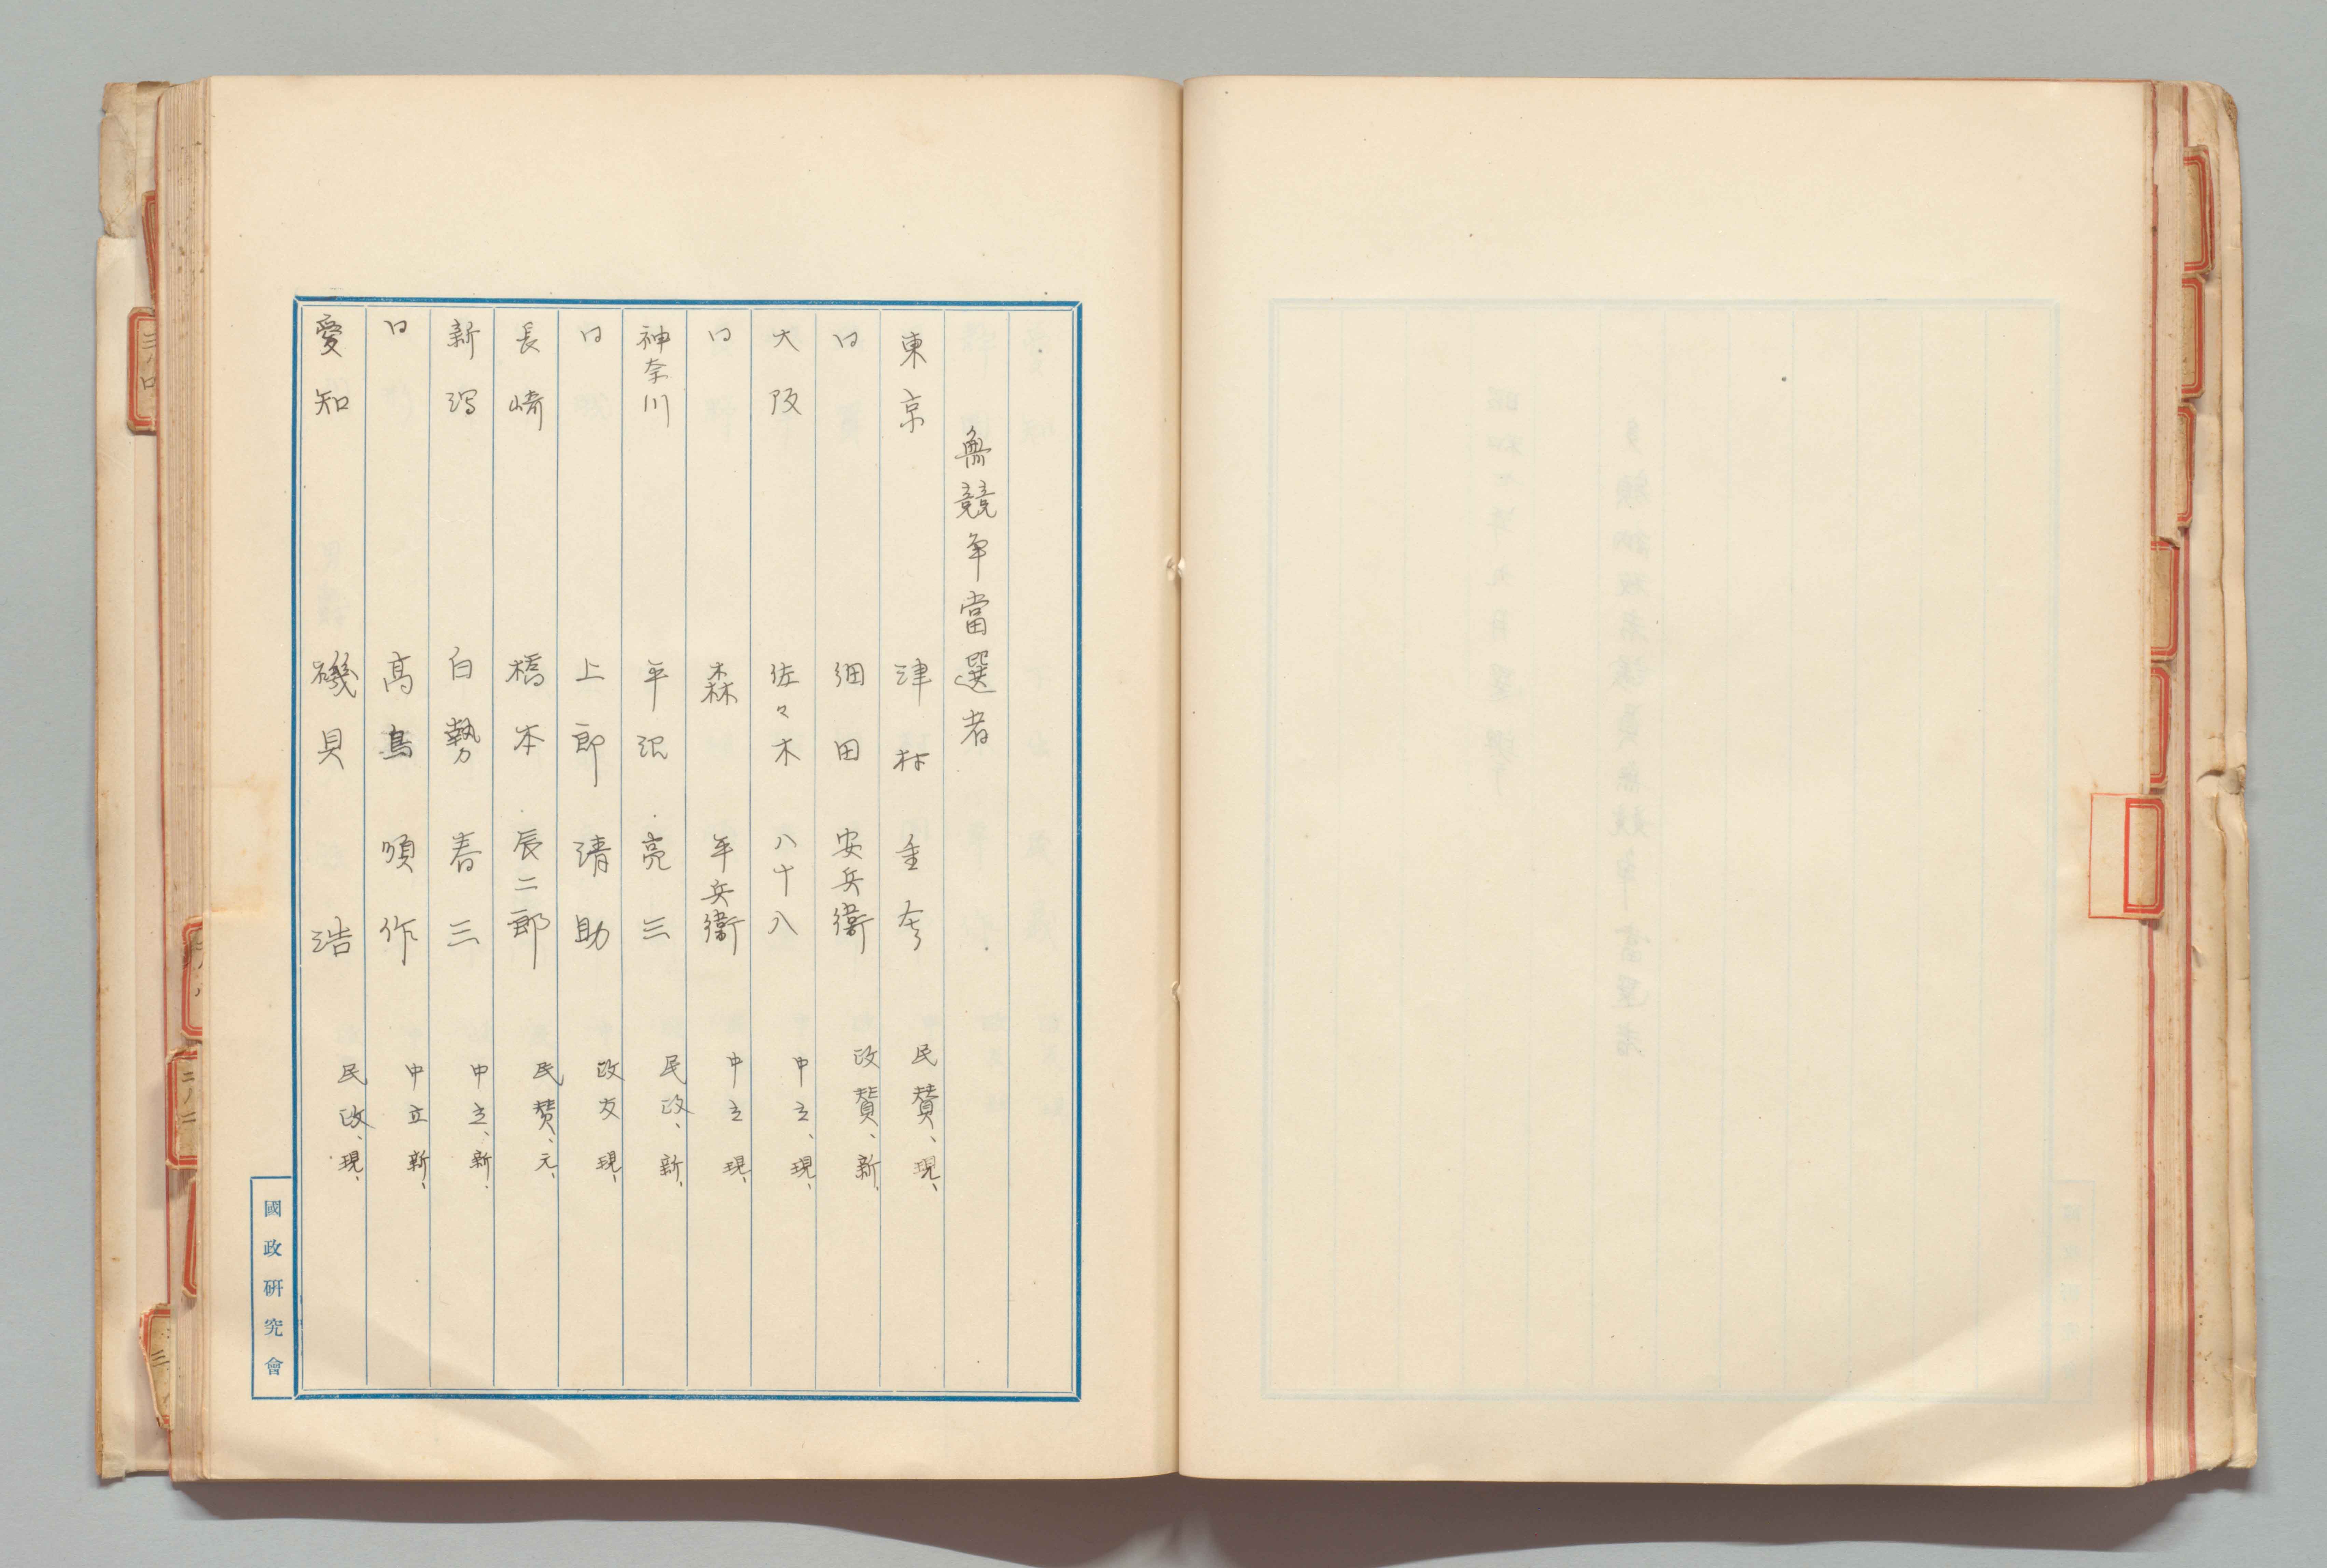 無競争當選者
東京 津村重舍 民賛、現、
〃 細田安兵衛 政賛、新、
大阪 佐々木八十八 中立、現、
〃 森平兵衛 中立現、
神奈川 平沼亮三 民政、新、
〃 上郎清助 政友現、
長崎 橋本辰二郎 民賛、元、
新潟 白勢春三 中立、新、
〃 高鳥順作 中立新、
愛知 磯貝浩 民政、現、
國政研究會